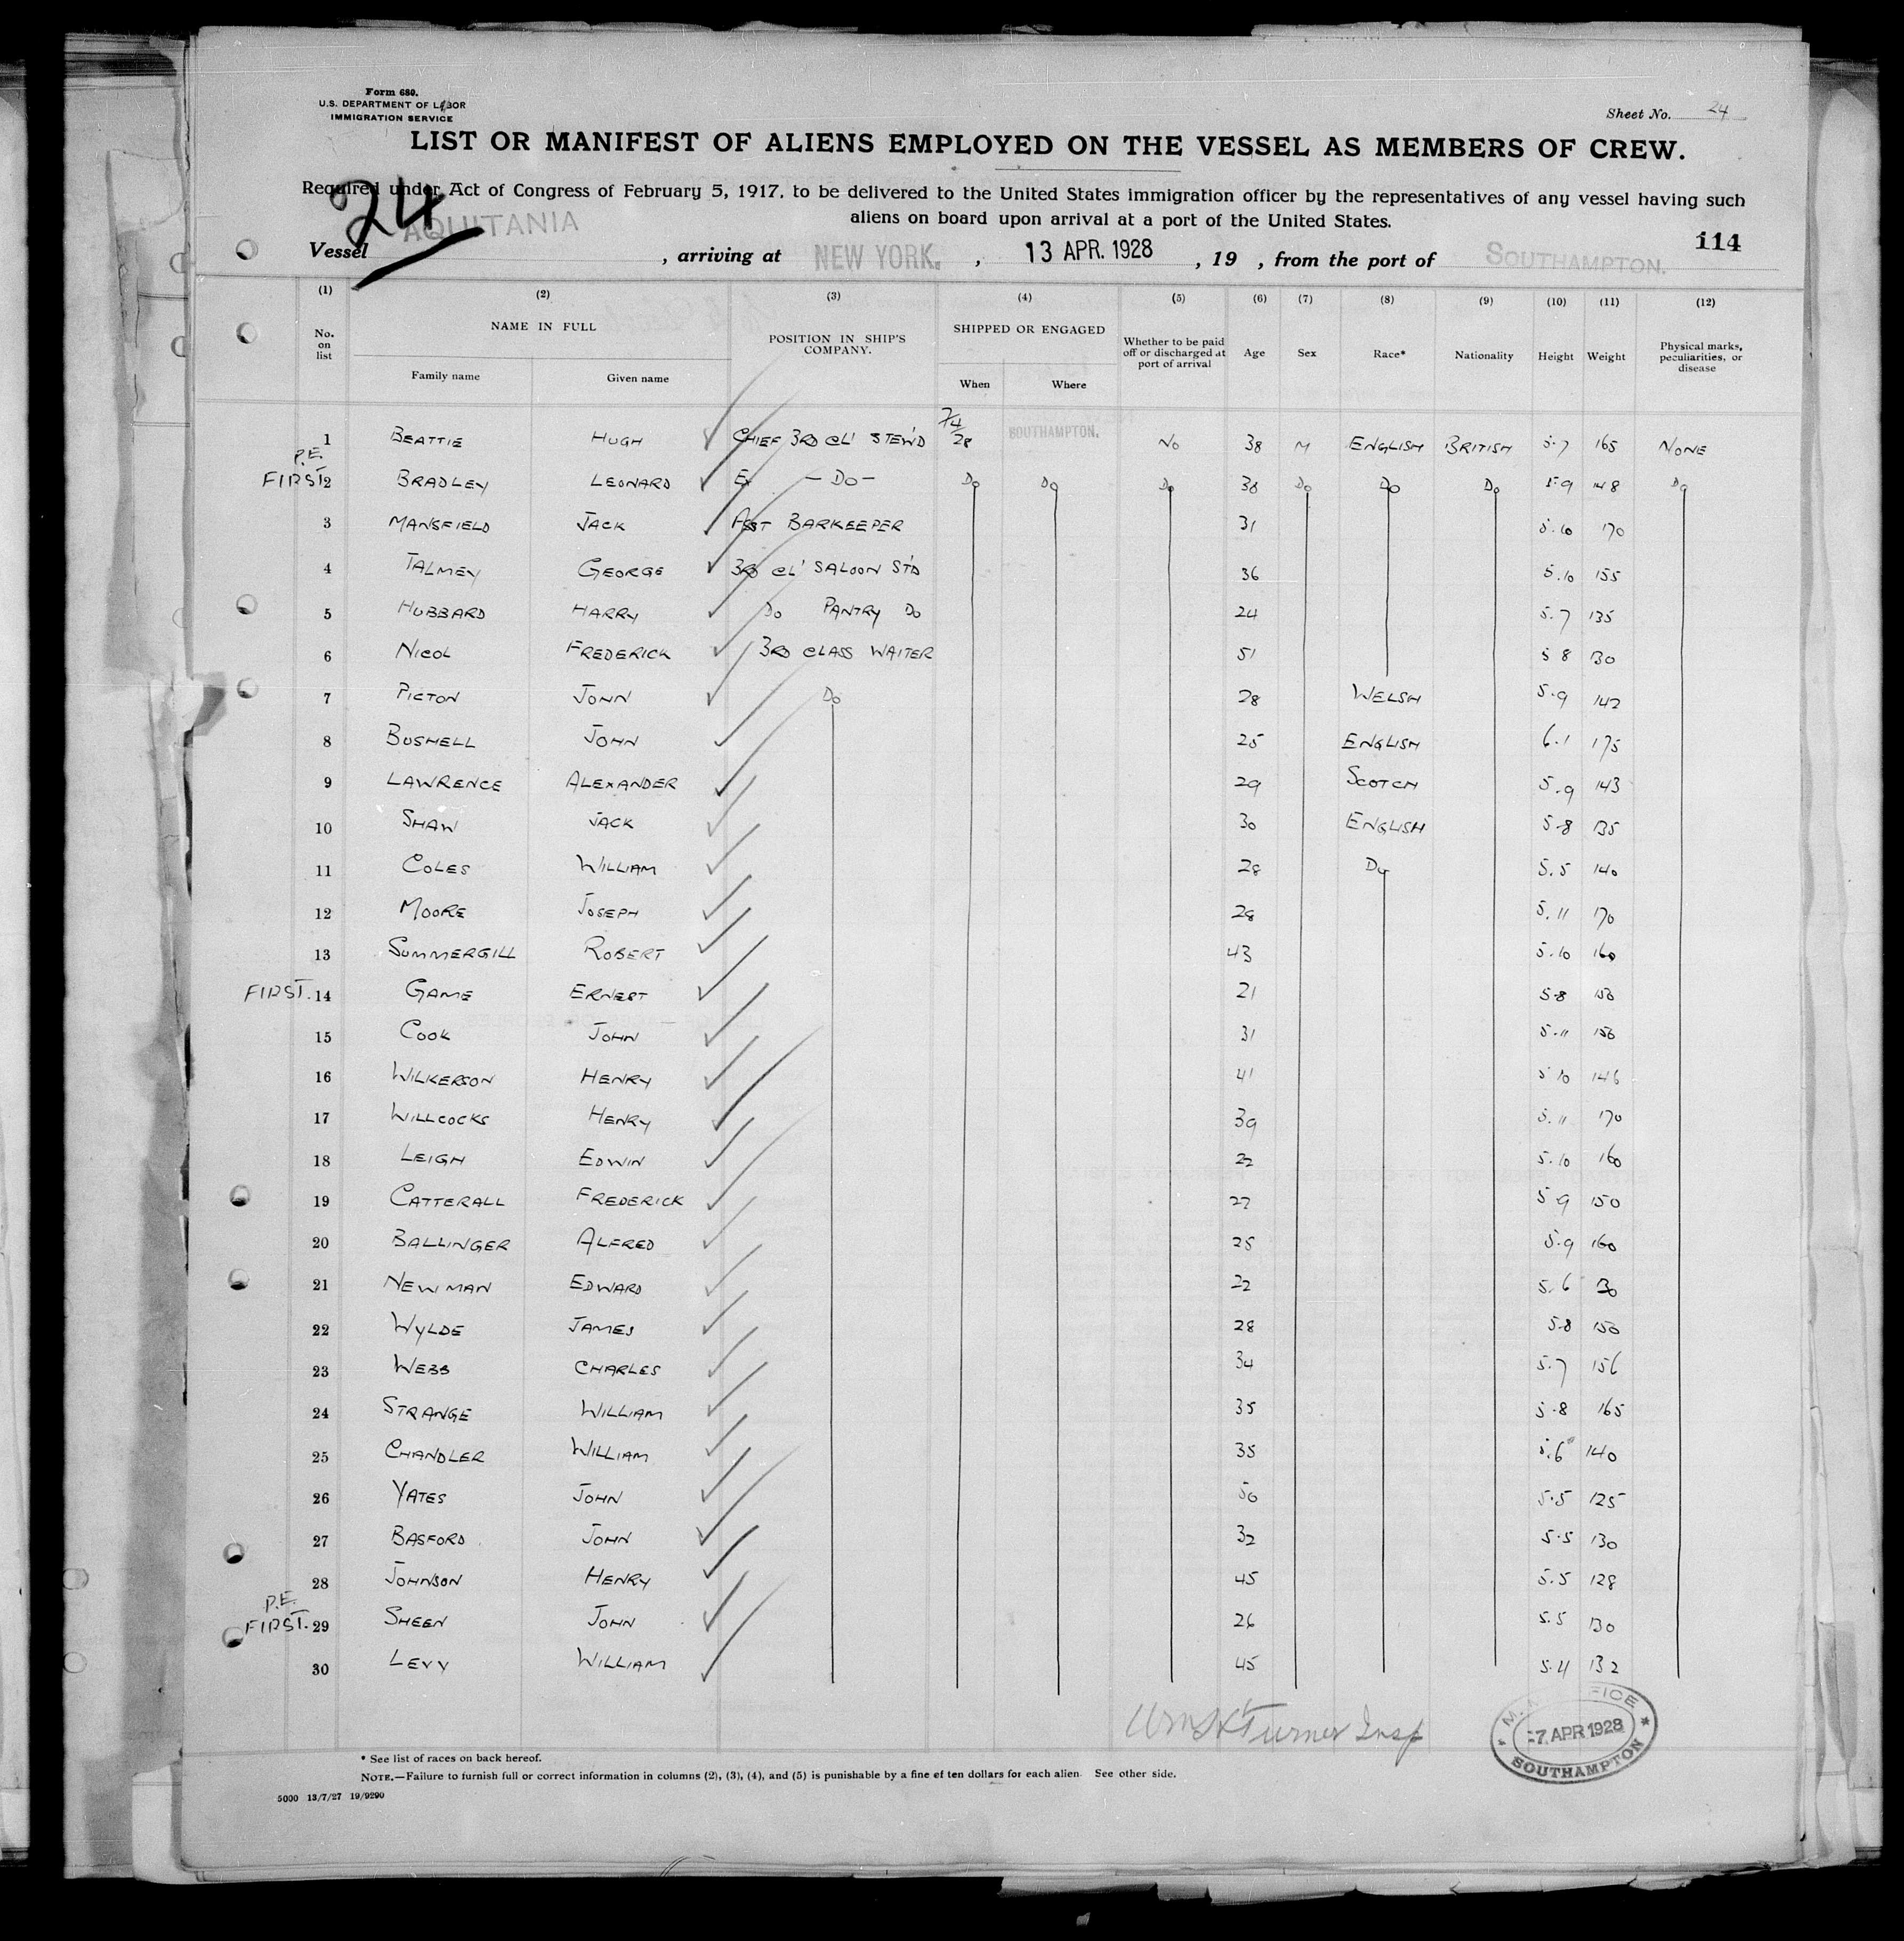 Form 680.
U.S. DEPARTMENT OF LABOR
IMMIGRATION SERVICE
Sheet No. 24
LIST OR MANIFEST OF ALIENS EMPLOYED ON THE VESSEL AS MEMBERS OF CREW.
Required under Act of Congress of February 5, 1917, to be delivered to the United States immigration officer by the representatives of any vessel having such
aliens on board upon arrival at a port of the United States.
24
114
Vessel AQUITANIA, arriving at NEW YORK., 13 APR. 1928, 19 , from the port of SOUTHAMPTON.
(1) (2) (3) (4) (5) (6) (7) (8) (9) (10) (11) (12)
No. on list NAME IN FULL POSITION IN SHIP'S COMPANY. SHIPPED OR ENGAGED Whether to be paid off or discharged at port of arrival Age Sex Race* Nationality Height Weight Physical marks, peculiarities, or disease
Family name Given name When Where
1 BEATTIE HUGH CHIEF 3RD CL' STEW'D 7/4/28 SOUTHAMPTON. NO 38 M ENGLISH BRITISH 5.7 165 NONE
P.E.
FIRST 2 BRADLEY LEONARD — DO — DO DO DO 38 DO DO DO 5 9 148 DO
3 MANSFIELD JACK ASST BARKEEPER 31 5.10 170
4 TALMEY GEORGE 3RD CL' SALOON STD 36 5.10 155
5 HUBBARD HARRY DO PANTRY DO 24 5.7 135
6 NICOL FREDERICK 3RD CLASS WAITER 51 5 8 130
7 PICTON JOHN DO 28 WELSH 5.9 142
8 BUSHELL JOHN 25 ENGLISH 6.1 175
9 LAWRENCE ALEXANDER 29 SCOTCH 5.9 143
10 SHAW JACK 30 ENGLISH 5.8 135
11 COLES WILLIAM 28 DO 5.5 140
12 MOORE JOSEPH 28 5.11 170
13 SUMMERGILL ROBERT 43 5.10 160
FIRST. 14 GAME ERNEST 21 5.8 150
15 COOK JOHN 31 5.11 150
16 WILKERSON HENRY 41 5 10 146
17 WILLCOCKS HENRY 39 5.11 170
18 LEIGH EDWIN 22 5.10 160
19 CATTERALL FREDERICK 27 5.9 150
20 BALLINGER ALFRED 25 5.9 160
21 NEWMAN EDWARD 22 5.6 130
22 WYLDE JAMES 28 5.8 150
23 WEBB CHARLES 34 5.7 156
24 STRANGE WILLIAM 35 5.8 165
25 CHANDLER WILLIAM 35 5.6 140
26 YATES JOHN 50 5.5 125
27 BASFORD JOHN 32 5.5 130
28 JOHNSON HENRY 45 5.5 128
P.E.
FIRST. 29 SHEEN JOHN 26 5.5 130
30 LEVY WILLIAM 45 5.4 132
Turner Insp
OFFICE
7 APR 1928
SOUTHAMPTON
* See list of races on back hereof.
NOTE.—Failure to furnish full or correct information in columns (2), (3), (4), and (5) is punishable by a fine of ten dollars for each alien. See other side.
5000 13/7/27 19/9290